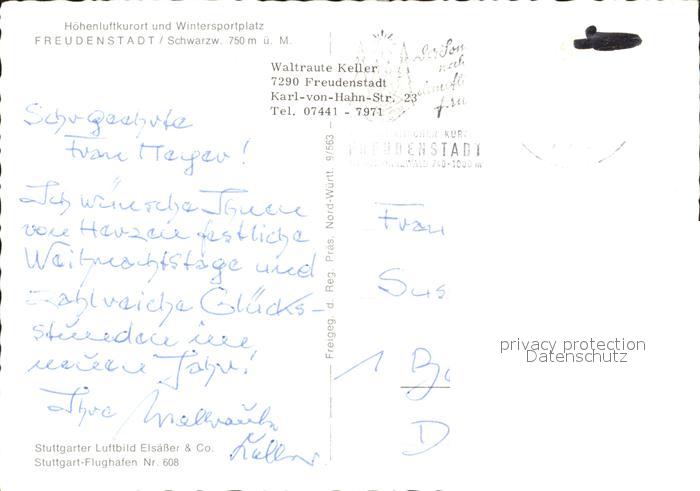 Höhenluftkurort und Wintersportplatz
FREUDENSTADT / Schwarzw. 750 m ü. M.
Waltraute Keller
7290 Freudenstadt
Karl-von-Hahn-Str. 23
Tel. 07441 - 7971
FREUDENSTADT
740-1000 m
Sehr geehrte
Frau Meyer!
Ich wünsche Ihnen
von Herzen festliche
Weihnachtstage und
zahlreiche Glücks-
stunden im
neuen Jahr!
Ihre Waltraute
Keller
Freigeg. d. Reg. Präs. Nord-Württ. 9/563
Frau
Sus
1 B
D
privacy protection
Datenschutz
Stuttgarter Luftbild Elsäßer & Co.
Stuttgart-Flughafen Nr. 608